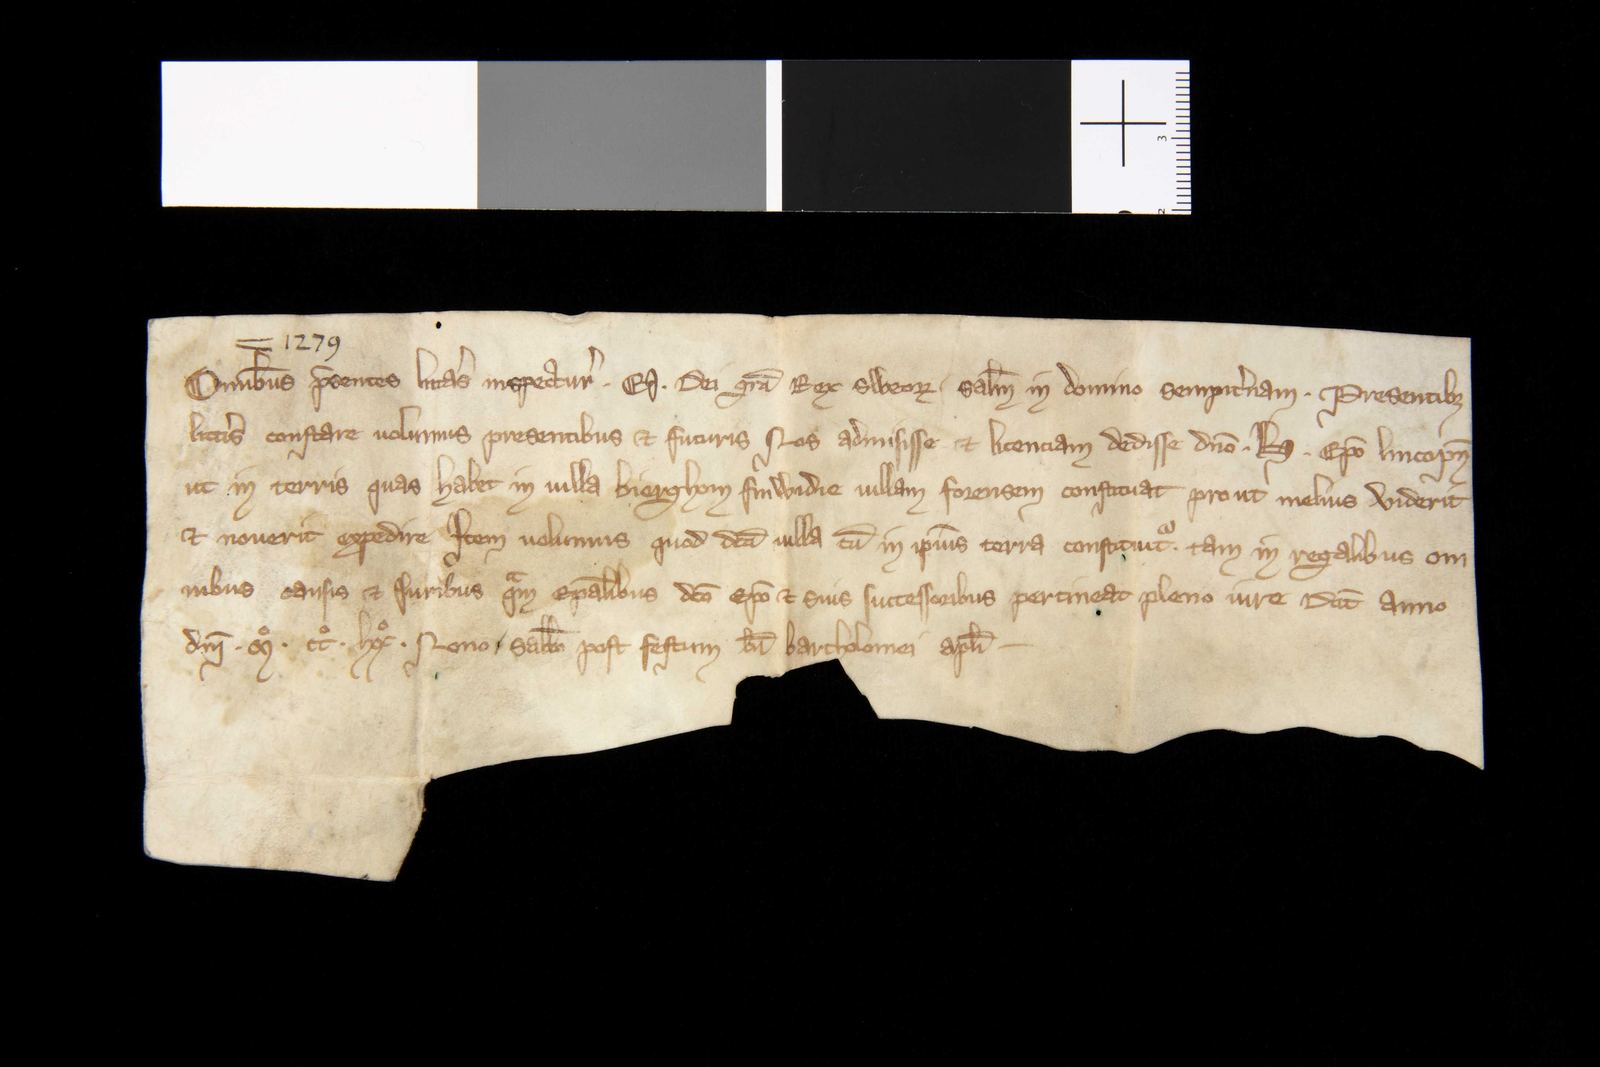 = 1279
Omnib᷒us p̄sentes litt̄as inspectur᷒ . E . Dei gr̄a Rex sweoꝝ salt̄m in domino sempit᷒nam . Presentibꝫ
litt᷒is constare uolumus presentibus et futuris Nos admisisse et licenciam dedisse dn̄o . . Ep̄o lincopn̄
ut in terris quas habet in uilla bierghom finwidie uillam forensem constituat prout melius viderit
et nouerit expedire Item uolumus quod dc̄a uilla cū in ip̄ius terra constituit᷒ . tam in regalibus om
nibus causis et iuribus qᵃm ep̄alibus dc̄o ep̄o et suis successoribus pertineat pleno iure Dat̄ anno
dn̄i . mͦ . ccͦ . lxxͦ . Nono . sabb̄o post festum bt̄i bartholomei apl̄i
3
2